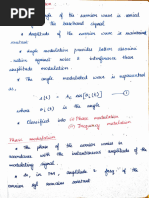 angle of the carrier wave is varied
the baseband signal
* Amplitude of the carrier wave is maintained
constant
* Angle modulation provides better discrimi
nation against noise & interference than
amplitude modulation.
* The angle modulated wave is represented
as,
s(t) = Ac cos[θi(t)]
where θi(t) is the angle
* Classified into (i) Phase modulation
(ii) Frequency modulation
Phase modulation
* The phase of the carrier wave is
accordance with the instantaneous amplitude of the
modulating signal.
* So, in PM, amplitude & freq. of the
carrier sgl remains constant